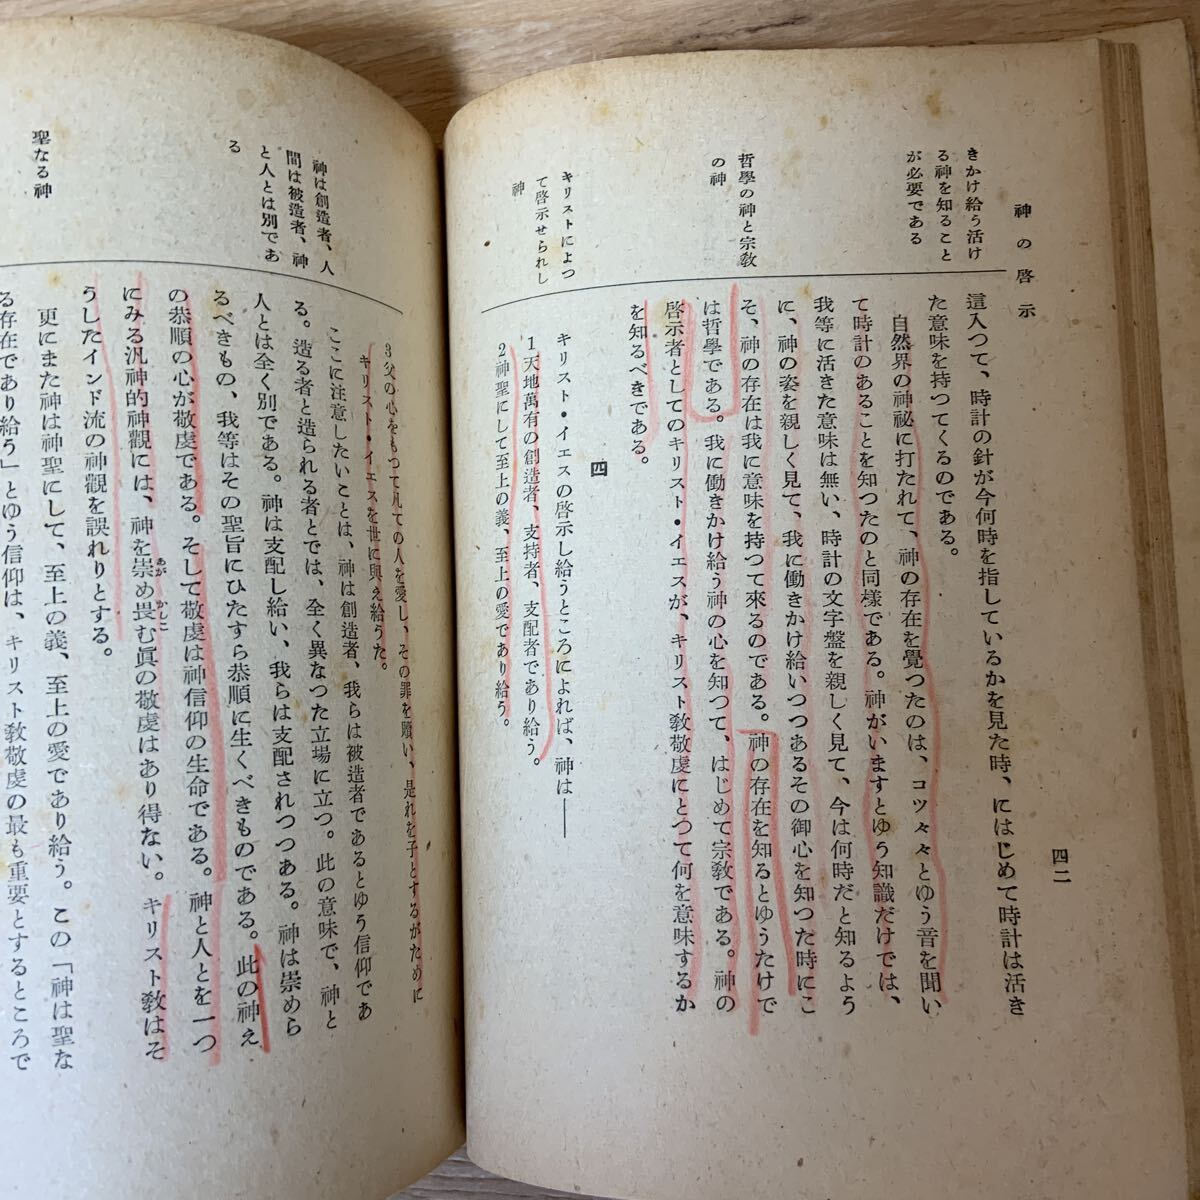 神の啓示
四二
きかけ給う活け
る神を知ること
が必要である
哲學の神と宗敎
の神
キリストによつ
て啓示せられし
神
這入つて、時計の針が今何時を指しているかを見た時、にはじめて時計は活き
た意味を持つてくるのである。
自然界の神祕に打たれて、神の存在を覺つたのは、コツ々々とゆう音を聞い
て時計のあることを知つたのと同樣である。神がいますとゆう知識だけでは、
我等に活きた意味は無い、時計の文字盤を親しく見て、今は何時だと知るよう
に、神の姿を親しく見て、我に働きかけ給いつつあるその御心を知つた時にこ
そ、神の存在は我に意味を持つて來るのである。神の存在を知るとゆうたけで
は哲學である。我に働きかけ給う神の心を知つて、はじめて宗敎である。神の
啓示者としてのキリスト・イエスが、キリスト敎敬虔にとつて何を意味するか
を知るべきである。
四
キリスト・イエスの啓示し給うところによれば、神は――
1天地萬有の創造者、支持者、支配者であり給う。
2神聖にして至上の義、至上の愛であり給う。
神は創造者、人
間は被造者、神
と人とは別であ
る
聖なる神
3父の心をもつて凡ての人を愛し、その罪を贖い、是れを子とするがために
キリスト・イエスを世に與え給うた。
ここに注意したいことは、神は創造者、我らは被造者であるとゆう信仰であ
る。造る者と造られる者とでは、全く異なつた立場に立つ。此の意味で、神と
人とは全く別である。神は支配し給い、我らは支配されつつある。神は崇めら
るべきもの、我等はその聖旨にひたすら恭順に生くべきものである。此の神え
の恭順の心が敬虔である。そして敬虔は神信仰の生命である。神と人とを一つ
にみる汎神的神觀には、神を崇め畏む眞の敬虔はあり得ない。キリスト敎はそ
うしたインド流の神觀を誤れりとする。
更にまた神は神聖にして、至上の義、至上の愛であり給う。この「神は聖な
る存在であり給う」とゆう信仰は、キリスト敎敬虔の最も重要とするところで